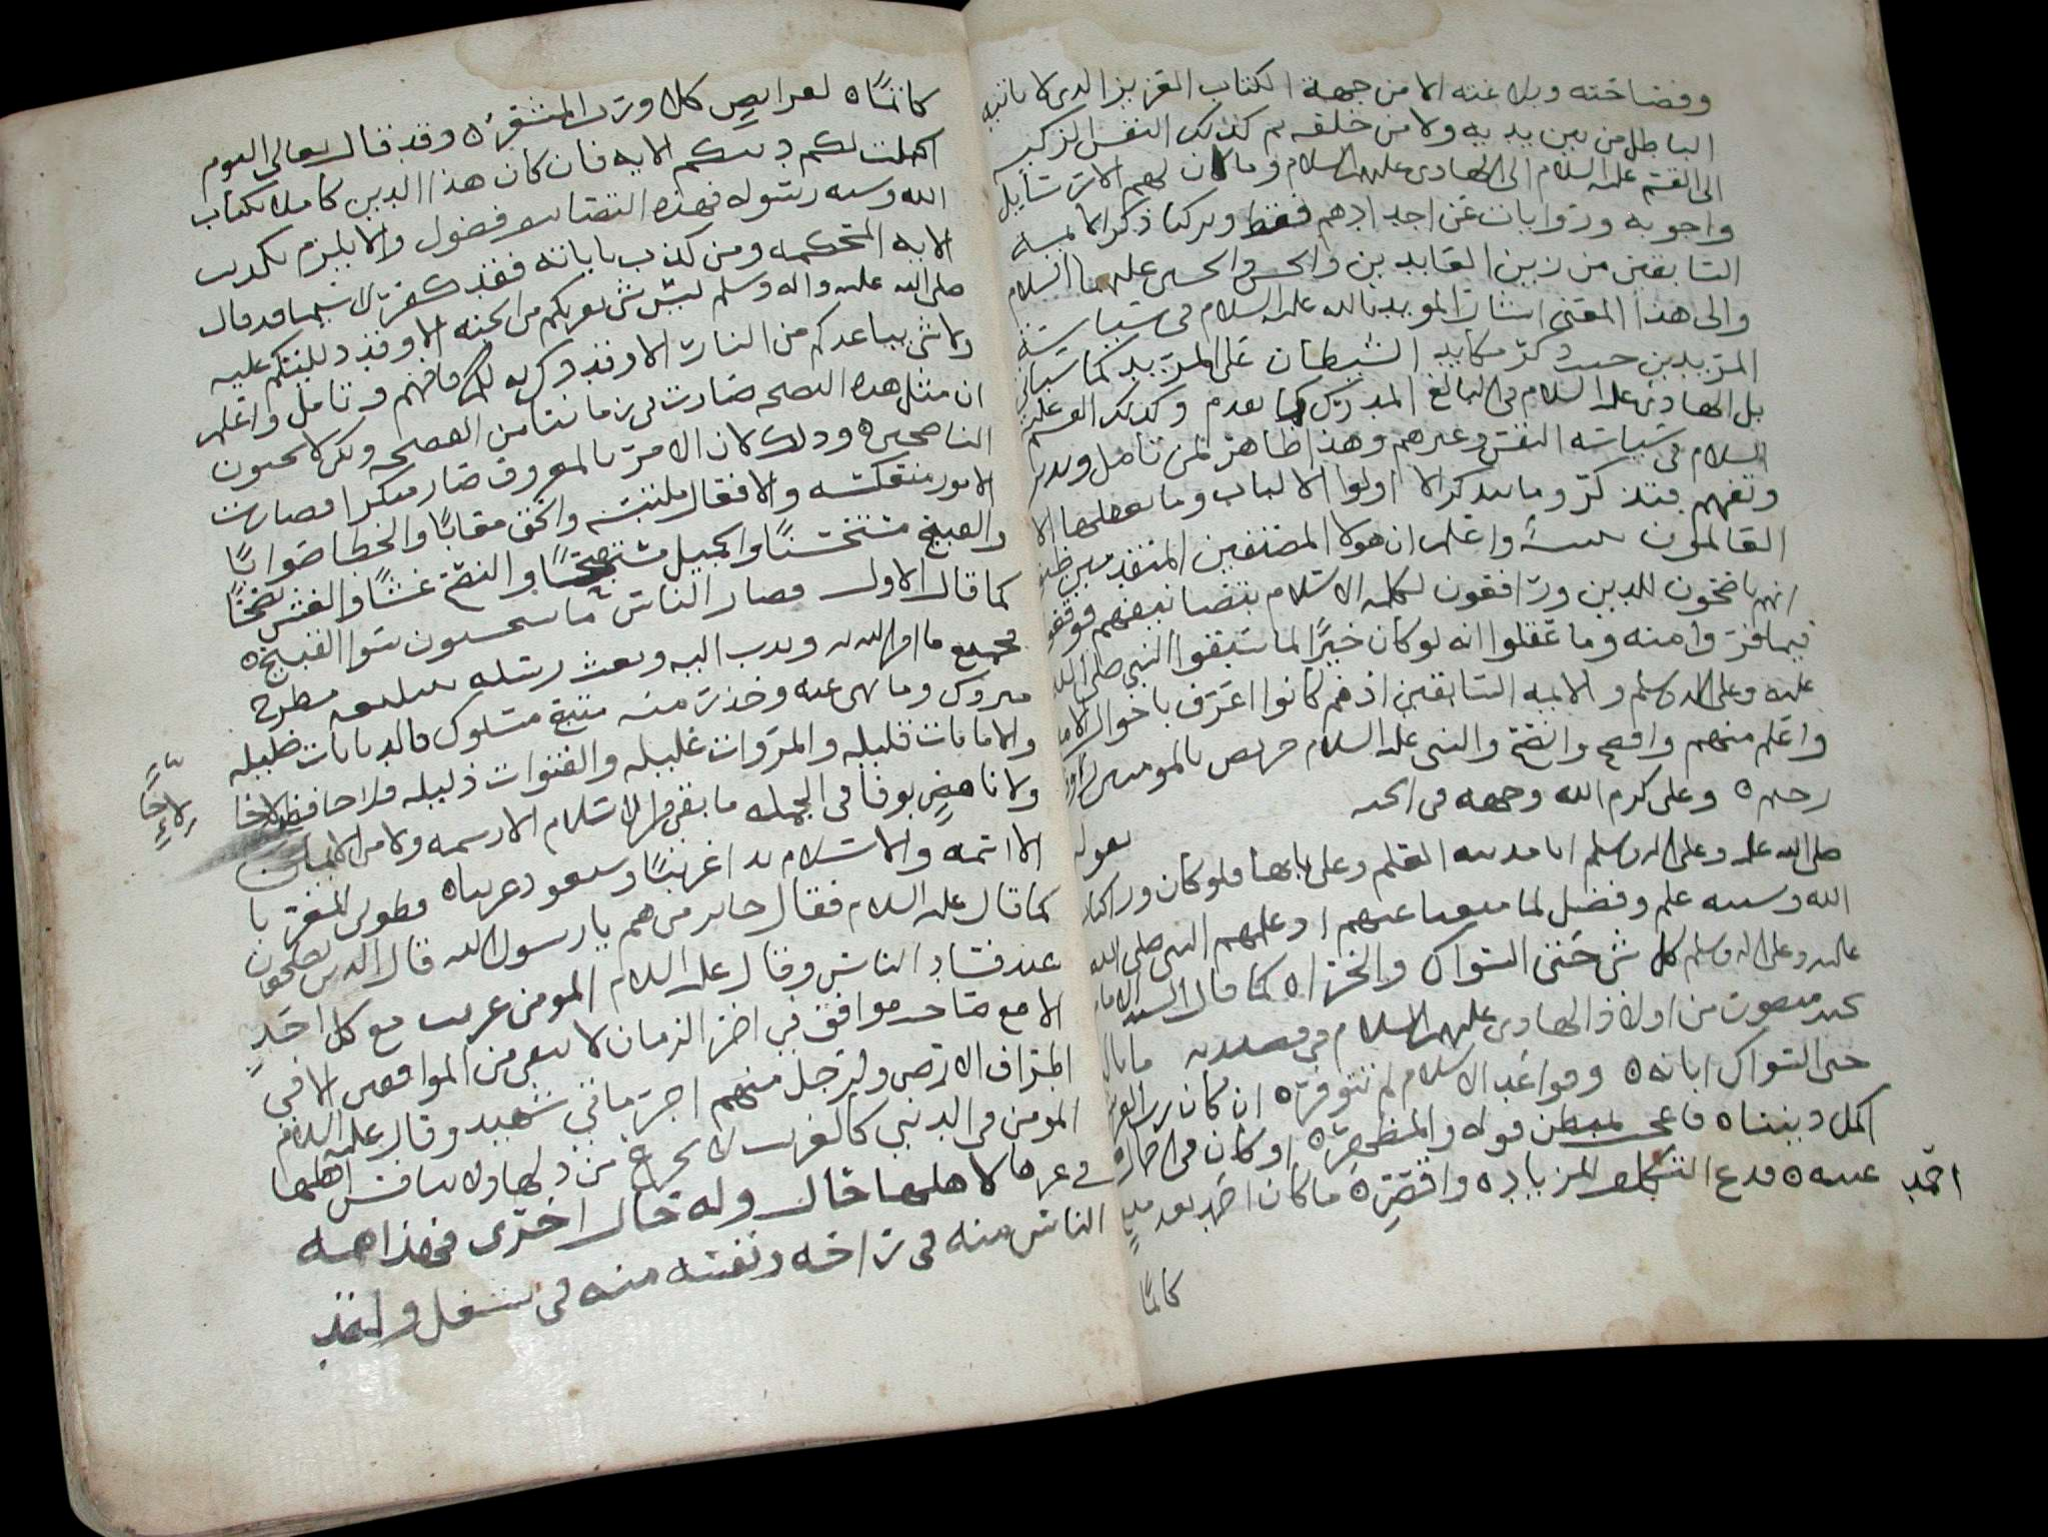 وفصاحته وبلاغته الا من جهة الكتاب العزيز الذي لا ياتيه
الباطل من بين يديه ولا من خلفه ثم كذلك النفس الزكية
الى القسم عليه السلام الى الهادي عليهم السلام وما كان لهم الا رسايل
واجوبه وروايات عن اجدادهم فقط وتركنا ذكر الايمة
السابقين من زين العابدين والحسن والحسين عليهما السلام
والى هذا المعنى اشار المويد بالله عليه السلام في سياسة
المريدين حيث ذكر مكايد الشيطان على المريد كما سياتي
بل الهادي عليه السلام في البالغ المدرك كما تقدم وكذلك القسم عليه
السلام في سياسة النفس وغيرهم وهذا ظاهر لمن تامل وتدبر
وتفهم فتذكر وما يتذكر الا اولوا الالباب وما يعقلها الا
العالمون واعلم ان هولا المصنفين المتقدمين
انهم ناصحون للدين ورافقون لكلمة الاسلام بتصانيفهم فوقعوا
فيما فروا منه وما عقلوا انه لو كان خيرًا لما سبقوا النبي صلى الله
عليه وعلى اله وسلم والايمه السابقين اذ هم كانوا اعرف باحوال الامة
واعلم منهم وافصح وانصح والنبي عليه السلام حريص بالمومنين رؤف
رحيم ه وعلي كرم الله وجهه في الجنه
يقول
صلى الله عليه وعلى اله وسلم انا مدينة العلم وعلي بابها فلو كان ورا كتاب
الله وسنته علم وفضل لما منعنا عنهم اذ علمهم النبي صلى الله
عليه وعلى اله وسلم كل شي حتى السواك والخراه كما قال السيد الامام
من اولاد الهادي عليهم السلام في قصيدته ما بال
حتى السواك ابانه ه وقواعد الاسلام لم تتوفره ان كان رب العرش
اكمل ديننا ه فاعجب لمبطن قوله والمظهره او كان في
احمد عنيته ه فدع التكلف للزياده واقصره ما كان احمد بعد
كاتمًا
كاتمًا ه لفرايض كلا ورب المشعره وقد قال تعالى اليوم
اكملت لكم دينكم الايه فان كان هذا الدين كاملا بكتاب
الله وسنة رسوله فهذه التصانيف فضول والا يلزم تكذيب
الايه المحكمه ومن كذب باياته فقد كفر لا سيما وقد قال
صلى الله عليه واله وسلم ليس شي يقربكم من الجنه الا وقد دللتكم عليه
ولا شي يباعدكم من النار الا وقد ذكرته لكم فافهم وتامل واعلم
ان مثل هذه النصيحه صارت في زماننا من الفضيحه ولكن لا تحبون
الناصحين ه وذلك لان الامر بالمعروف صار منكرا فصارت
الامور منعكسه والافعال ملتبسه والحق معابًا والخطا صوابًا
والقبيح مستحسنًا والجميل مستقبحًا والنصح غشًا والغش نصحًا
كما قال الاول فصار الناس ما يستحسنون سوا القبيح ه
فجميع ما امر الله به وندب اليه وبعث رسله بتبليغه مطرح
متروك وما نهى عنه وحذر منه متبع مسلوك فالديانات
والامانات قليله والمروات عليله والفتوات ذليله فلا حافظ لاخا
لإخًا
ولا ناهض بوفا في الجمله ما بقي من الاسلام الا رسمه ولا من الايمان
الا اسمه والاسلام بدا غريبًا وسيعود غريبا ه فطوبى للغربا
كما قال عليه السلام فقال جابر من هم يا رسول الله قال الذين يصلحون
عند فساد الناس وقال عليه السلام المومن غريب مع كل احد
الا مع صاحب موافق في اخر الزمان لا يبقى من الموافقين الا في
اطراف الارض ولرجل منهم اجر ماتي شهيد وقال عليه السلام
المومن في الدنيا كالغريب لا يجزع من ذلها ولا ينافس اهلها
في عزها لاهلها حال وله حال اخرى قد اهمه
الناس منه في راحه ونفسه منه في شغل ولقد